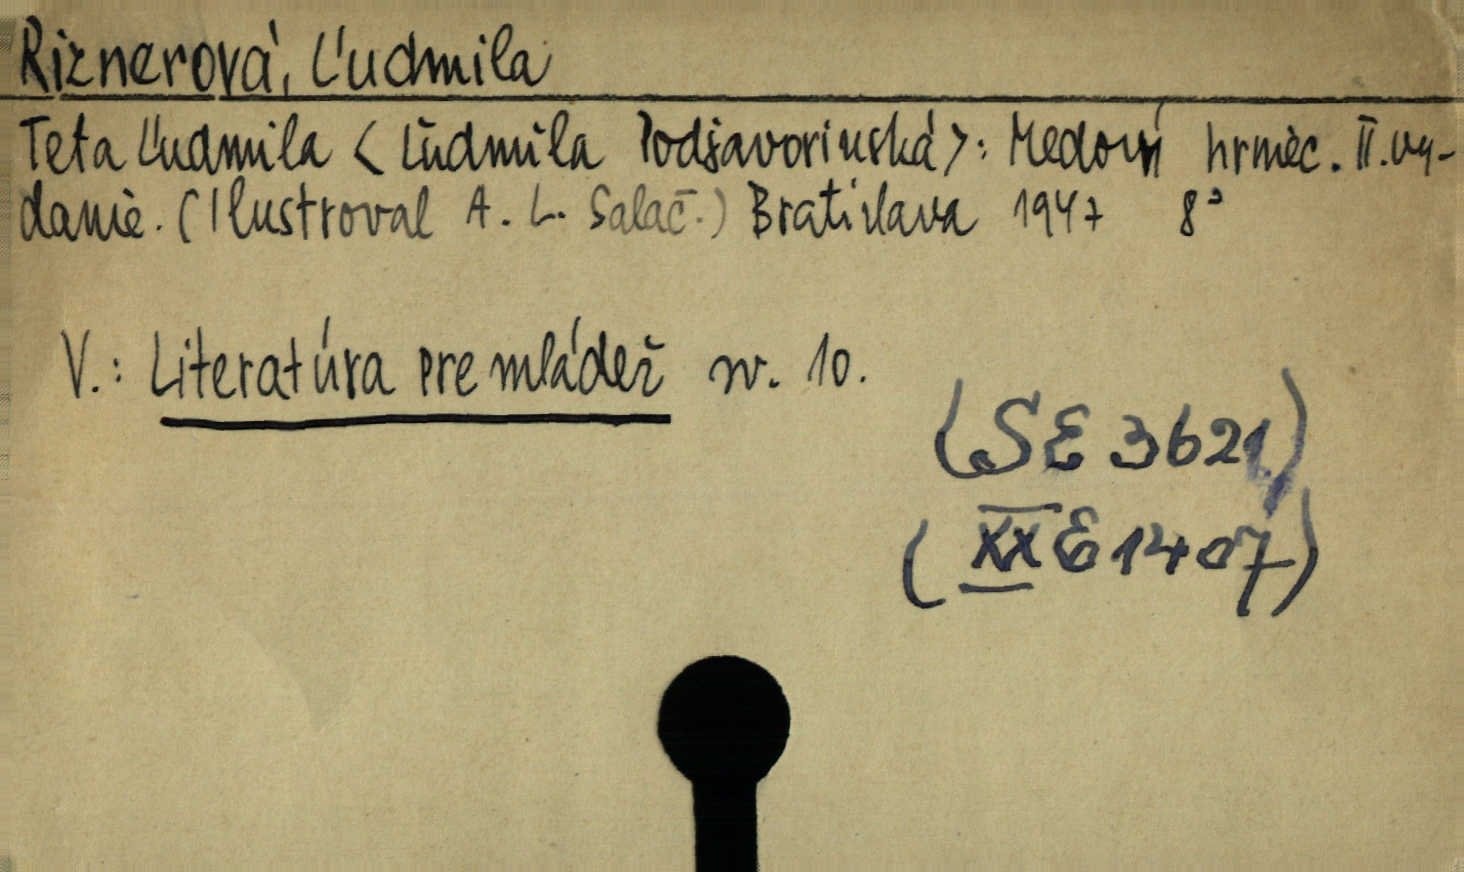 Riznerová, Ľudmila
Teta Ľudmila <Ľudmila Podjavorinská>: Medový hrniec. II. vy-
danie. (Ilustroval A. L. Salač.) Bratislava 1947 8°
V.: Literatúra pre mládež sv. 10.
(SE 3621)
(XX E 1407)